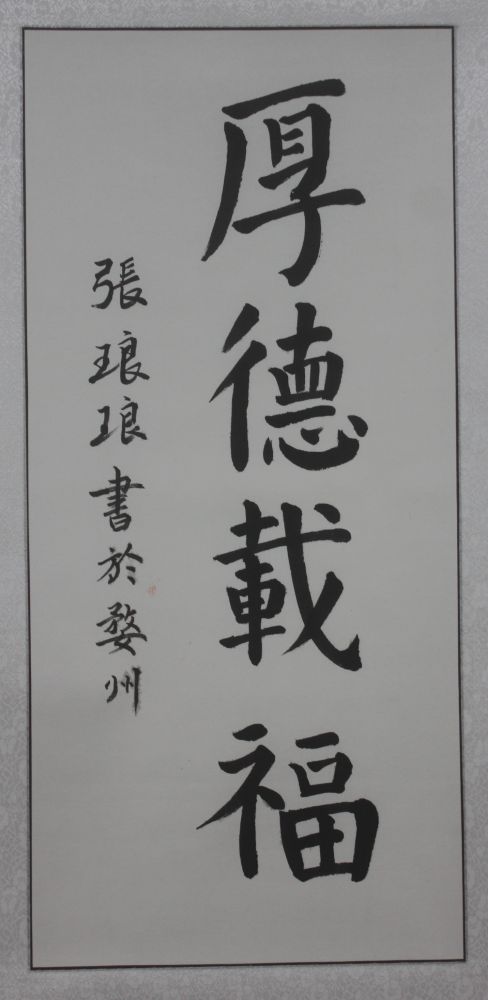 厚德載福
張琅琅書於婺州